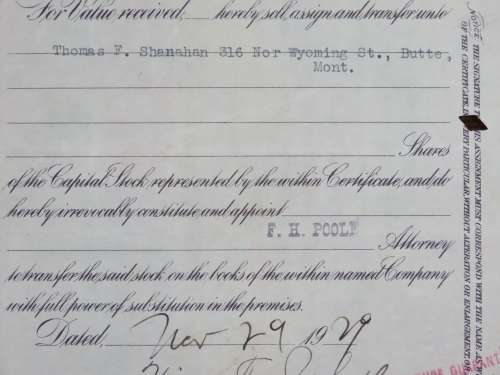 For Value received, hereby sell, assign and transfer unto
Thomas F. Shanahan 316 Nor Wyoming St., Butte,
Mont.
Shares
of the Capital Stock represented by the within Certificate, and do
hereby irrevocably constitute and appoint
F. H. POOLE
Attorney
to transfer the said stock on the books of the within named Company
with full power of substitution in the premises.
Dated, Nov 29 1929
NOTICE. THE SIGNATURE THIS ASSIGNMENT MUST CORRESPOND WITH THE NAME AS
OF THE CERTIFICATE, EVERY PARTICULAR, WITHOUT ALTERATION OR ENLARGEMENT, OR